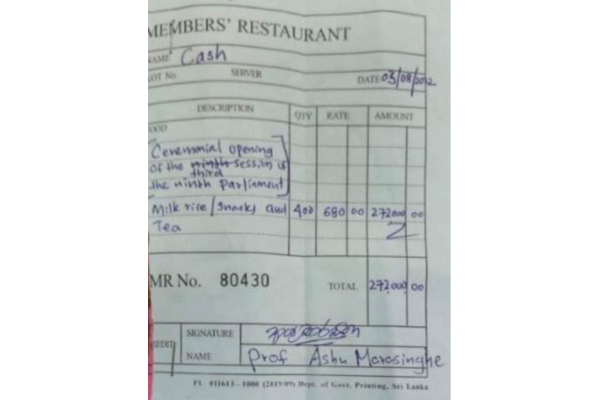 MEMBERS' RESTAURANT
NAME Cash
KOT No. SERVER DATE 03/08/2022
DESCRIPTION QTY RATE AMOUNT
FOOD
Ceremonial opening
of the ninth session of
third
the ninth Parliament
Milk rice / Snacks and 400 680 00 272000 00
Tea
MR No. 80430 TOTAL 272,000 00
CREDIT SIGNATURE
NAME Prof Ashu Marasinghe
P1. 011613 - 1000 (2019/09) Dept. of Govt. Printing, Sri Lanka